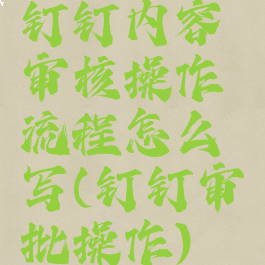 钉钉内容
审核操作
流程怎么
写(钉钉审
批操作)